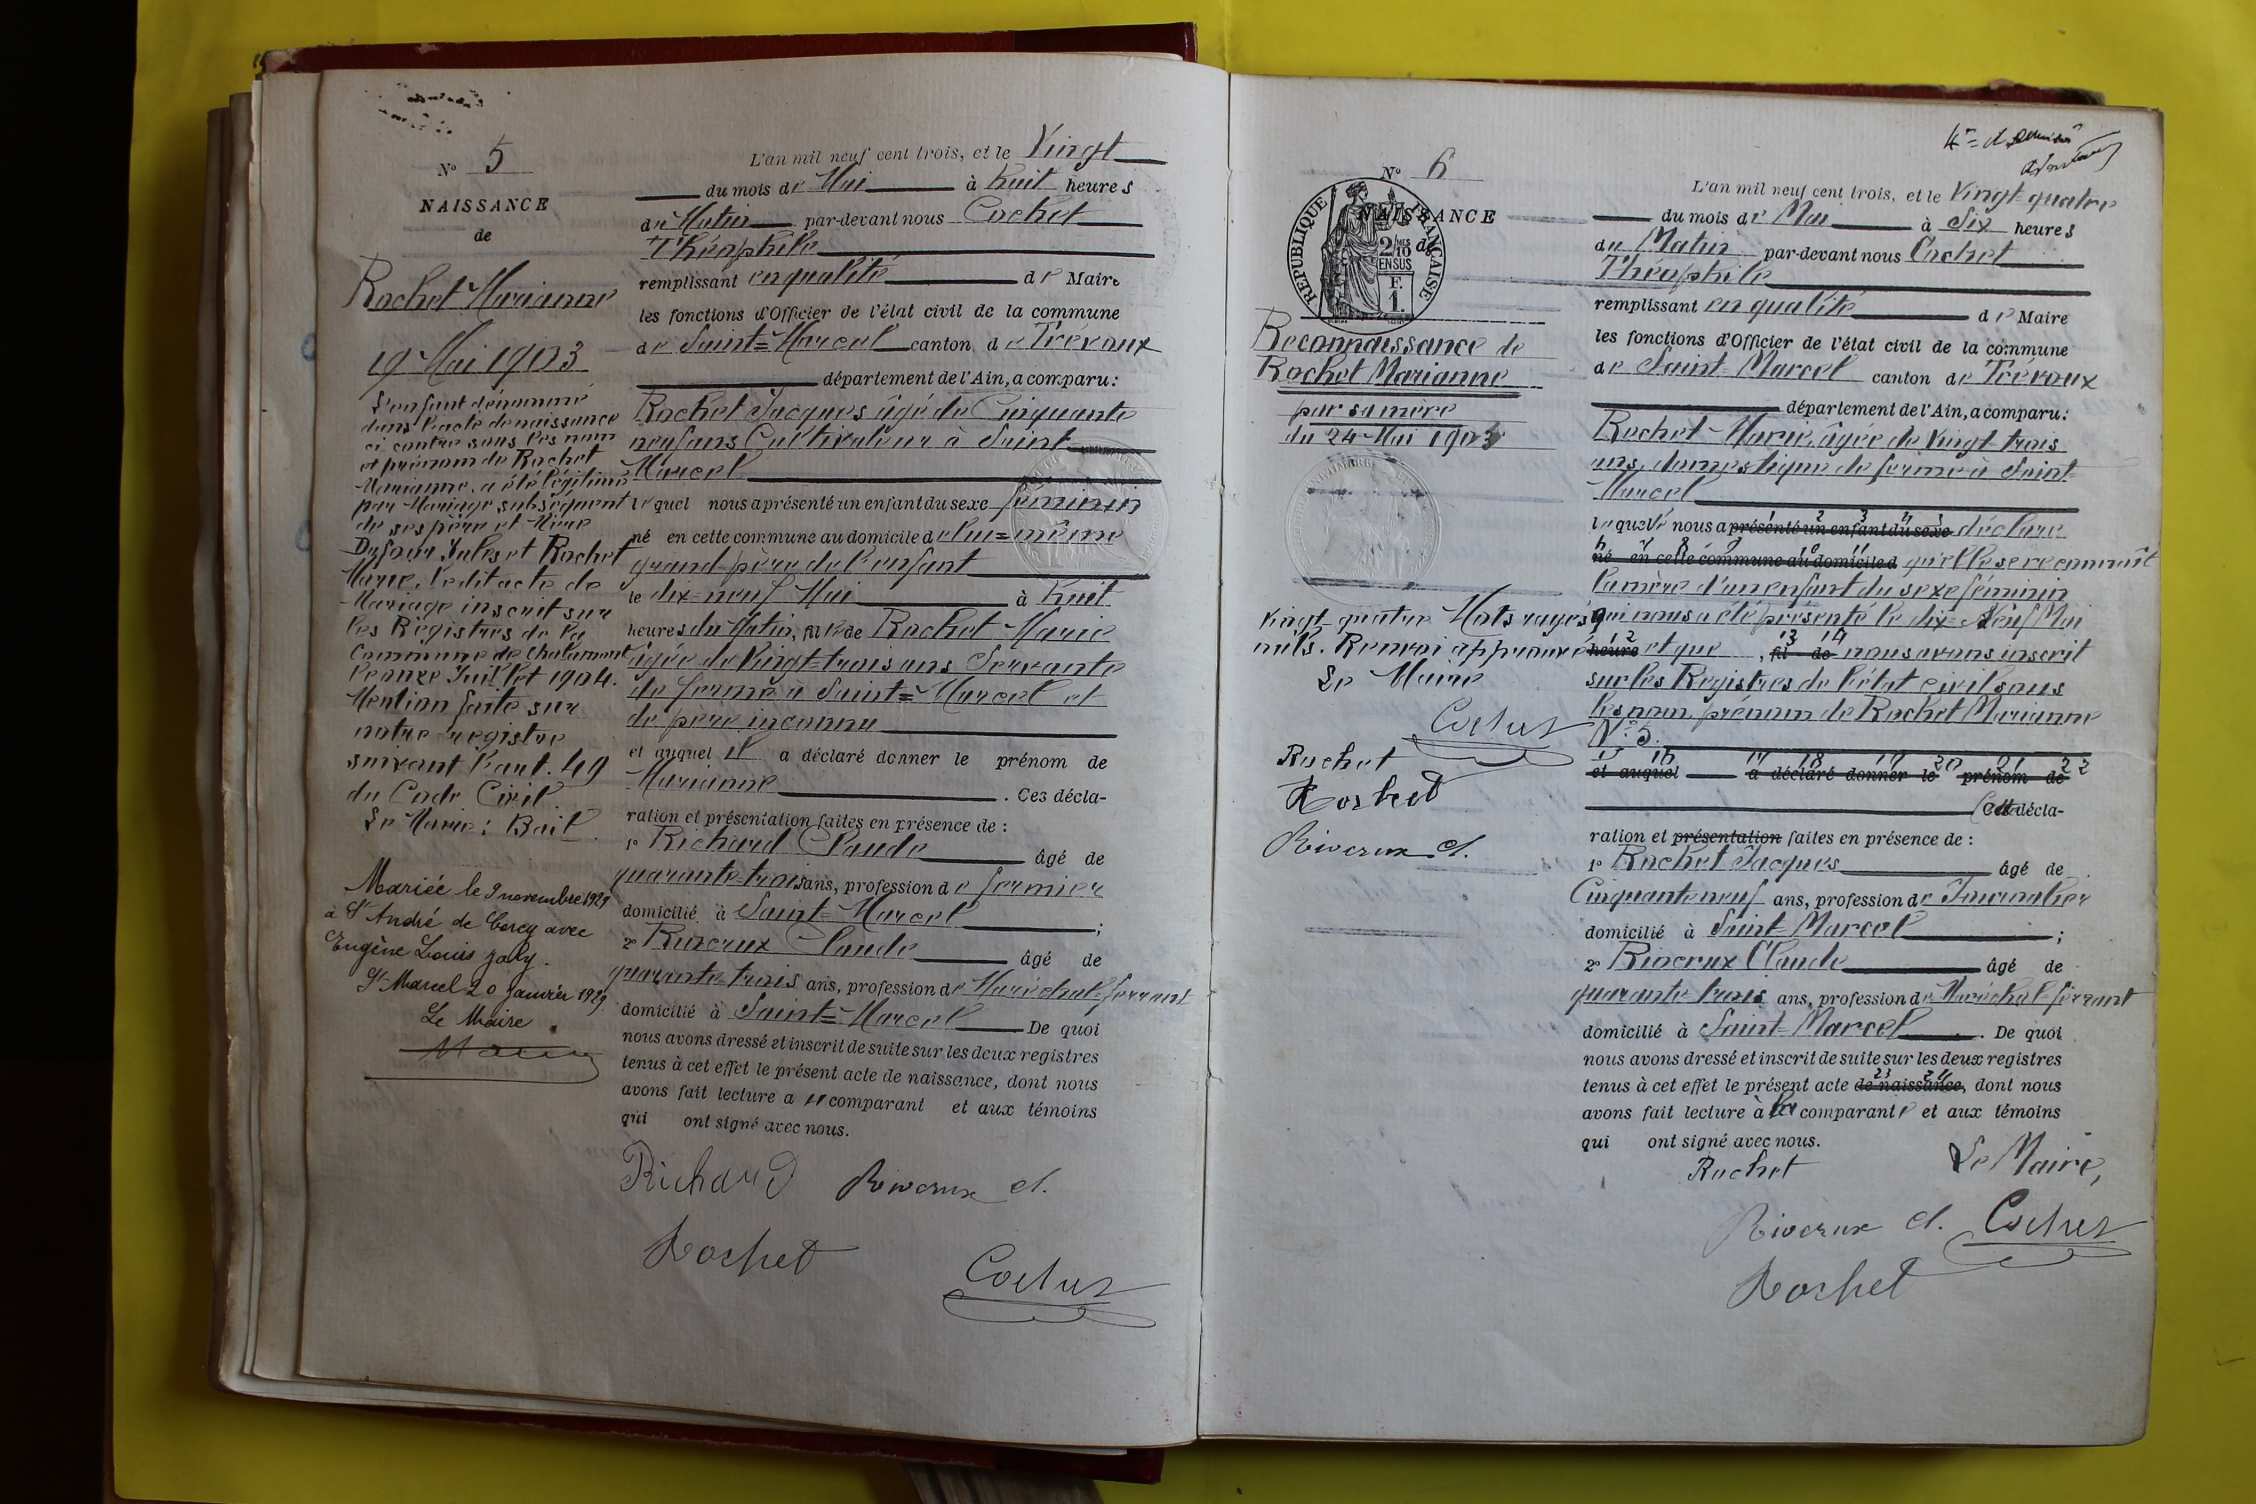 N° 5
NAISSANCE
de
Rochet Marianne
19 Mai 1903
L'enfant dénommé
dans l'acte de naissance
ci contre sous les nom
et prénom de Rochet
Marianne, a été légitimé
par Mariage subséquent
de ses père et Mère
Dufour Jules et Rochet
Marie, ledit acte de
Mariage inscrit sur
les Registres de la
Commune de Chalamont
le onze Juillet 1904.
Mention faite sur
notre registre
suivant l'art. 49
du Code Civil
Le Maire : Bail
Mariée le 9 novembre 1929
à St André de Corcy avec
Eugène Louis Joly.
St Marcel 20 janvier 1929
Le Maire
L'an mil neuf cent trois, et le Vingt
du mois de Mai à huit heures
du Matin par-devant nous Cochet
Théophile
remplissant en qualité de Maire
les fonctions d'Officier de l'état civil de la commune
de Saint=Marcel canton de Trévoux
département de l'Ain, a comparu :
Rochet Jacques âgé de Cinquante
neuf ans Cultivateur à Saint
Marcel
lequel nous a présenté un enfant du sexe féminin
né en cette commune au domicile de lui=même
grand-père de l'enfant
le dix=neuf Mai à huit
heures du Matin, fille de Rochet Marie
âgée de Vingt=trois ans Servante
de ferme à Saint=Marcel et
de père inconnu
et auquel il a déclaré donner le prénom de
Marianne. Ces décla-
ration et présentation faites en présence de :
1° Richard Claude âgé de
quarante-trois ans, profession de fermier
domicilié à Saint=Marcel ;
2° Riverux Claude âgé de
quarante trois ans, profession de Maréchal-ferrant
domicilié à Saint=Marcel De quoi
nous avons dressé et inscrit de suite sur les deux registres
tenus à cet effet le présent acte de naissance, dont nous
avons fait lecture au comparant et aux témoins
qui ont signé avec nous.
Richard Riverux Cl.
Rochet
Cochet
N° 6
NAISSANCE
de
REPUBLIQUE FRANÇAISE
2/10 MES
EN SUS
F.
1.
Reconnaissance de
Rochet Marianne
par sa mère
du 24 Mai 1903
Vingt-quatre Mots rayés
nuls. Renvoi approuvé
Le Maire
Cochet
Rochet
Rochet
Riverux Cl.
L'an mil neuf cent trois, et le Vingt=quatre
du mois de Mai à Six heures
du Matin par-devant nous Cochet
Théophile
remplissant en qualité de Maire
les fonctions d'Officier de l'état civil de la commune
de Saint=Marcel canton de Trévoux
département de l'Ain, a comparu :
Rochet Marie, âgée de Vingt-trois
ans, domestique de ferme à Saint
Marcel
laquelle nous a présenté un enfant du sexe déclare
né en cette commune au domicile d qu'elle se reconnaît
la mère d'un enfant du sexe féminin
qui nous a été présenté le dix=Neuf Mai
heure et que , fil de nous avons inscrit
sur les Registres de l'état civil sous
les nom prénom de Rochet Marianne
N° 5.
et auquel a déclaré donner le prénom de
Cette décla-
ration et présentation faites en présence de :
1° Rochet Jacques âgé de
Cinquante neuf ans, profession de Journalier
domicilié à Saint Marcel ;
2° Riverux Claude âgé de
quarante trois ans, profession de Maréchal-ferrant
domicilié à Saint=Marcel. De quoi
nous avons dressé et inscrit de suite sur les deux registres
tenus à cet effet le présent acte de naissance, dont nous
avons fait lecture à la comparante et aux témoins
qui ont signé avec nous.
Rochet Le Maire,
Riverux Cl. Cochet
Rochet